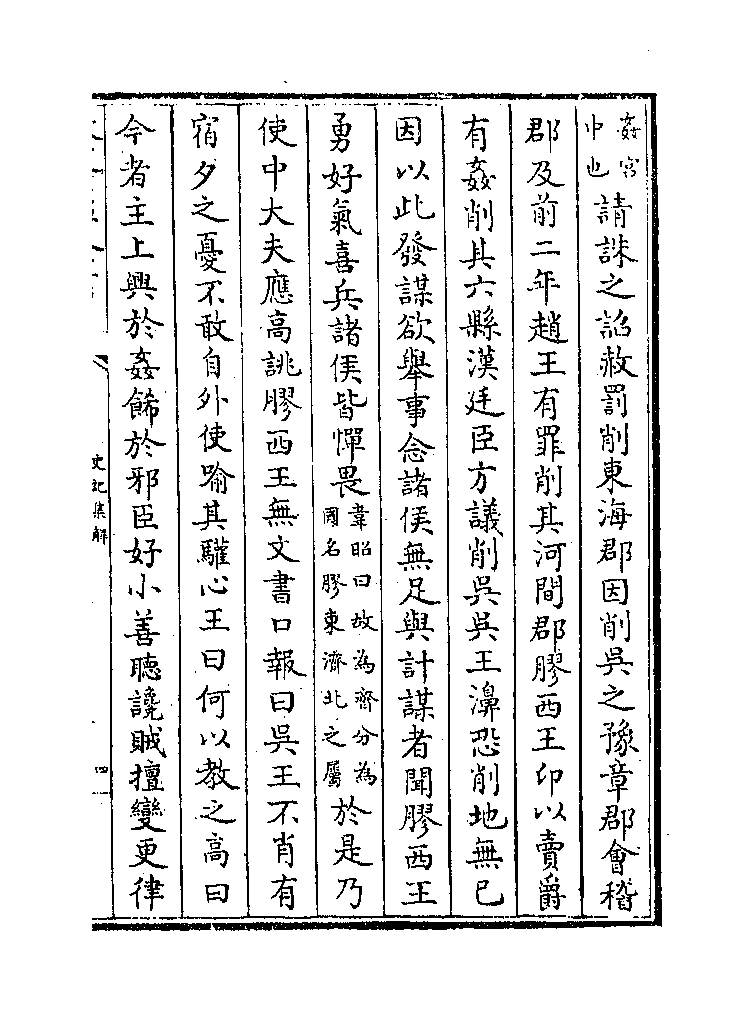 姦宮中也請誅之詔赦罰削東海郡因削吳之豫章郡會稽
郡及前二年趙王有罪削其河間郡膠西王卬以賣爵
有姦削其六縣漢廷臣方議削吳吳王濞恐削地無已
因以此發謀欲舉事念諸侯無足與計謀者聞膠西王
勇好氣喜兵諸侯皆憚畏韋昭曰故為齊分為國名膠東濟北之屬於是乃
使中大夫應高誂膠西王無文書口報曰吳王不肖有
宿夕之憂不敢自外使喻其驩心王曰何以教之高曰
今者主上興於姦飾於邪臣好小善聽讒賊擅變更律
史記集解
四